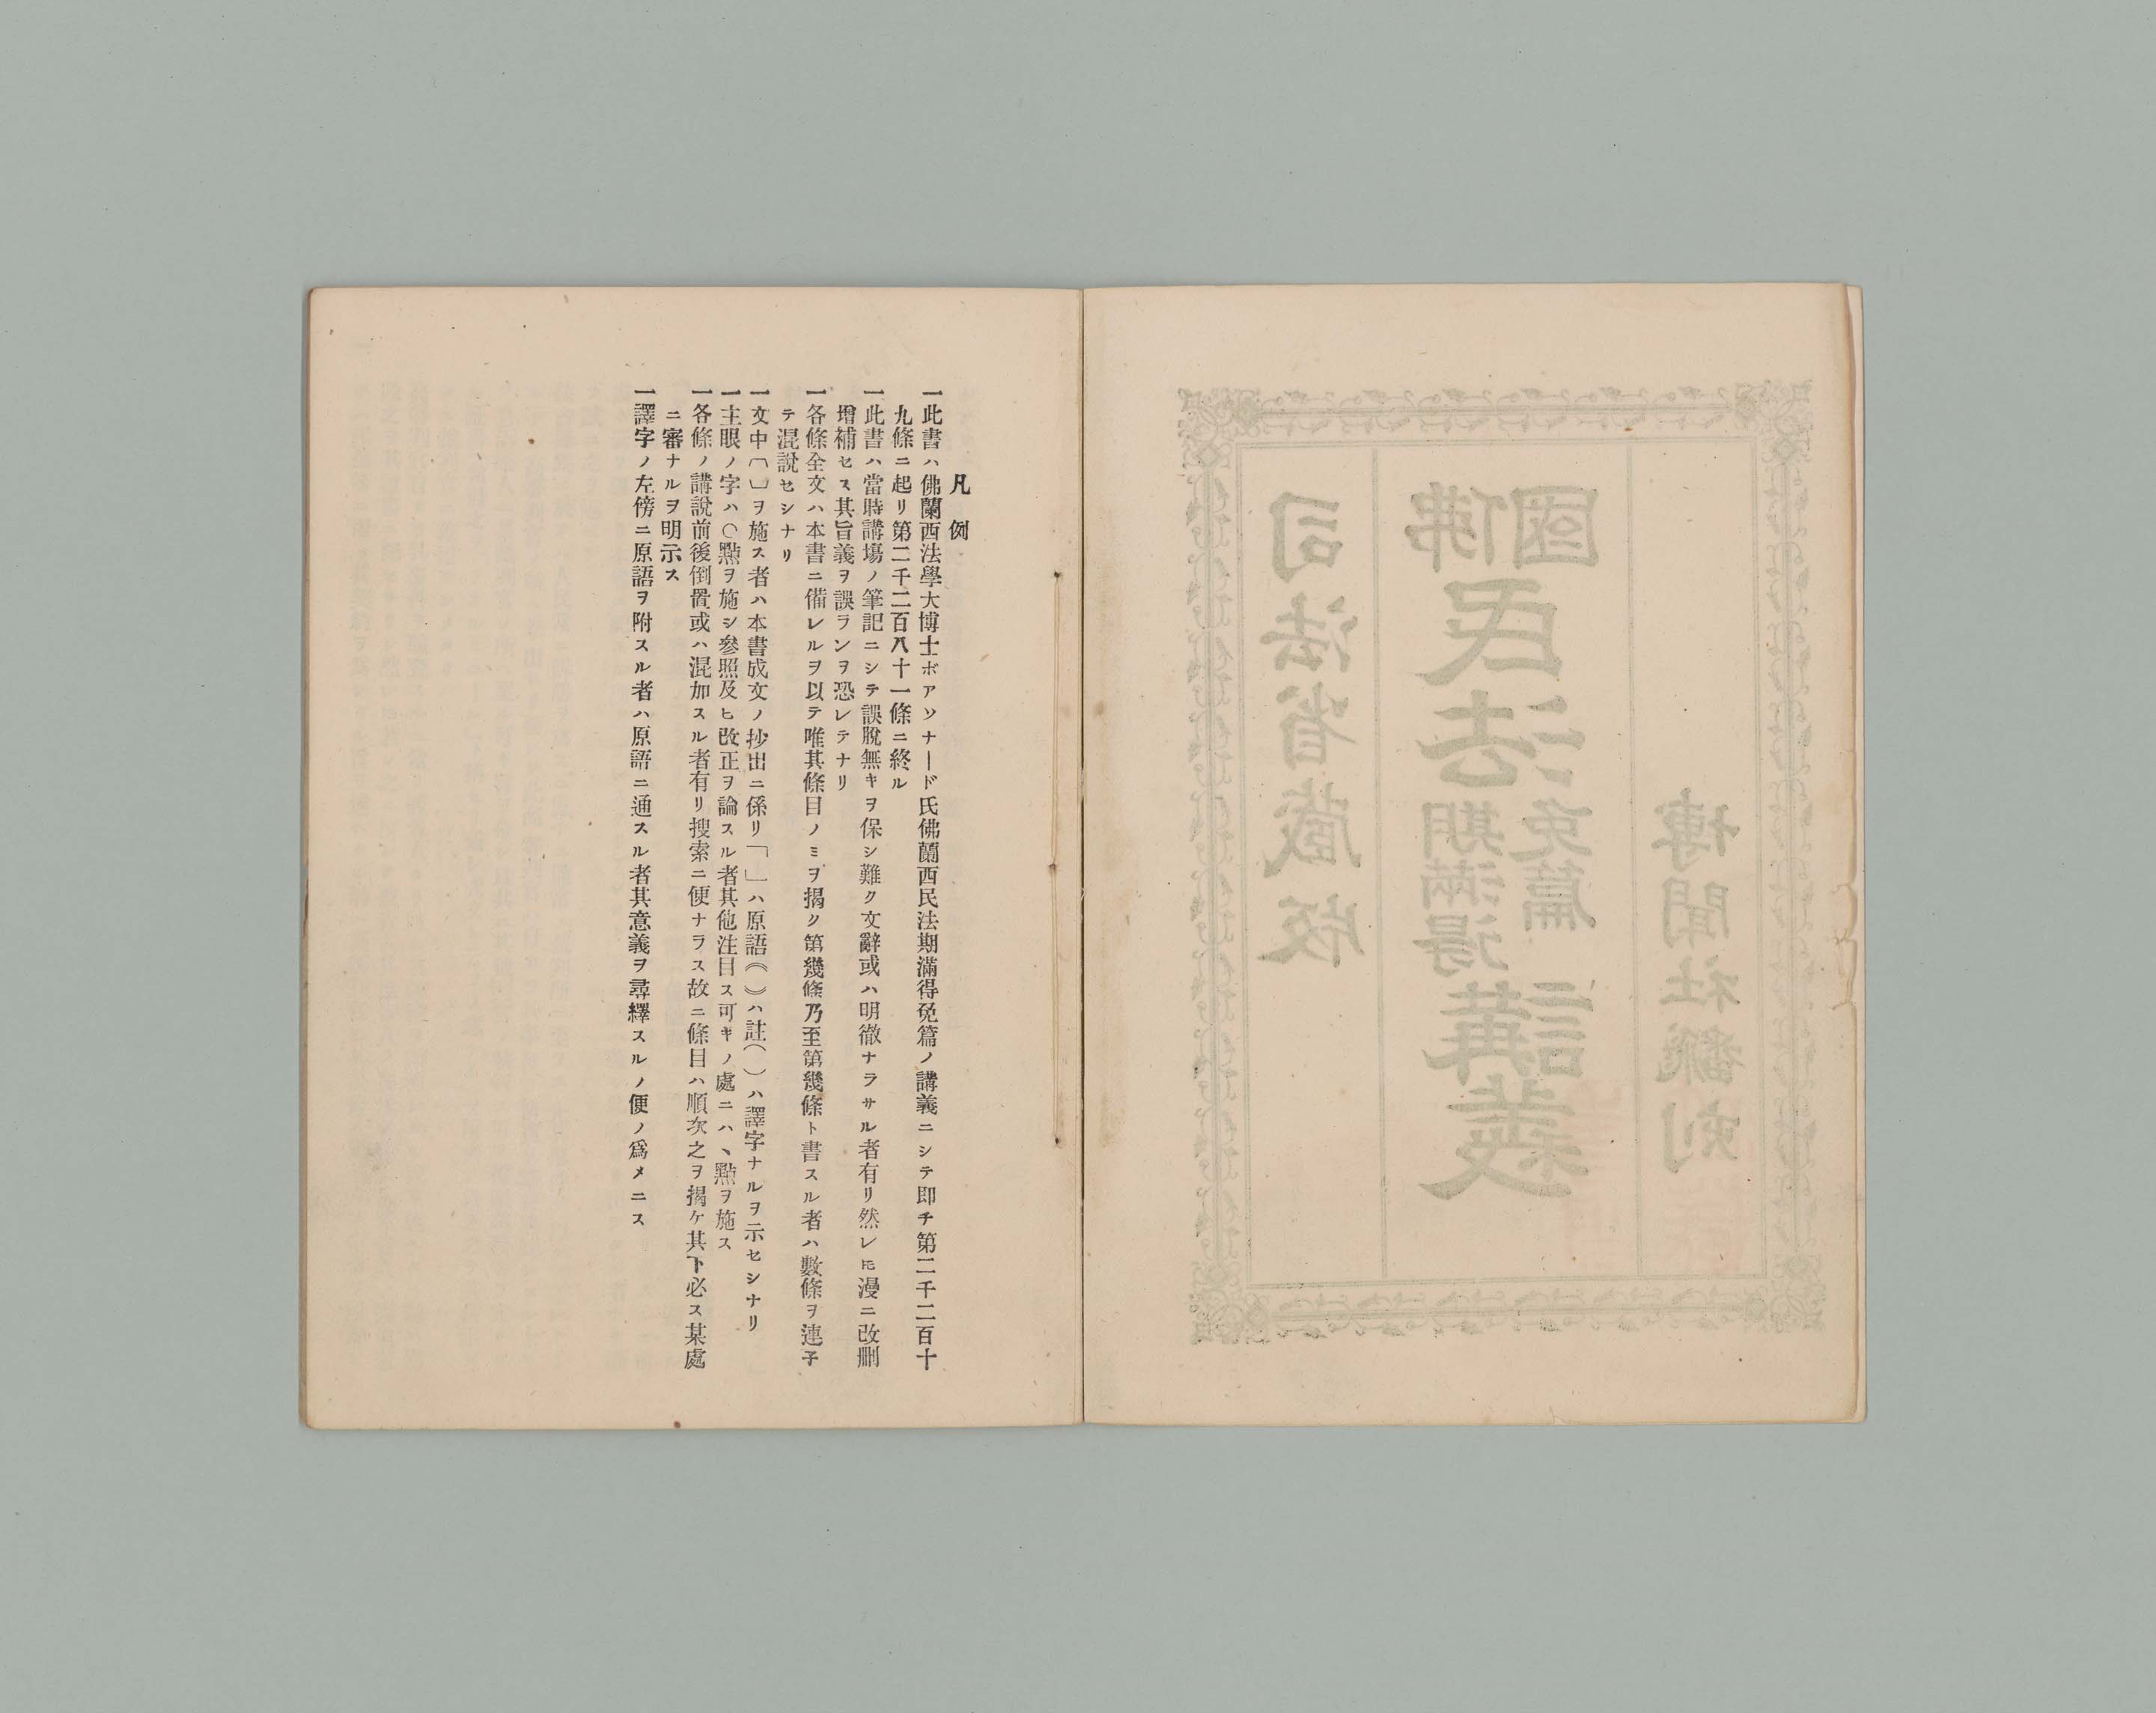 司法省蔵版
佛國
民法
期滿得
免篇
講義
博聞社飜刻
凡例
一此書ハ佛蘭西法學大博士ボアソナード氏佛蘭西民法期滿得免篇ノ講義ニシテ即チ第二千二百十
九條ニ起リ第二千二百八十一條ニ終ル
一此書ハ當時講塲ノ筆記ニシテ誤脫無キヲ保シ難ク文辭或ハ明徹ナラサル者有リ然レ𪜈漫ニ改刪
增補セス其旨義ヲ誤ランヲ恐レテナリ
一各條全文ハ本書ニ備レルヲ以テ唯其條目ノミヲ揭ク第幾條乃至第幾條ト書スル者ハ數條ヲ連子
テ混說セシナリ
一文中〔〕ヲ施ス者ハ本書成文ノ抄出ニ係リ「」ハ原語《》ハ註()ハ譯字ナルヲ示セシナリ
一主眼ノ字ハ○點ヲ施シ參照及ヒ改正ヲ論スル者其他注目ス可キノ處ニハ、點ヲ施ス
一各條ノ講說前後倒置或ハ混加スル者有リ搜索ニ便ナラス故ニ條目ハ順次之ヲ揭ケ其下必ス某處
ニ審ナルヲ明示ス
一譯字ノ左傍ニ原語ヲ附スル者ハ原語ニ通スル者其意義ヲ尋繹スルノ便ノ爲メニス